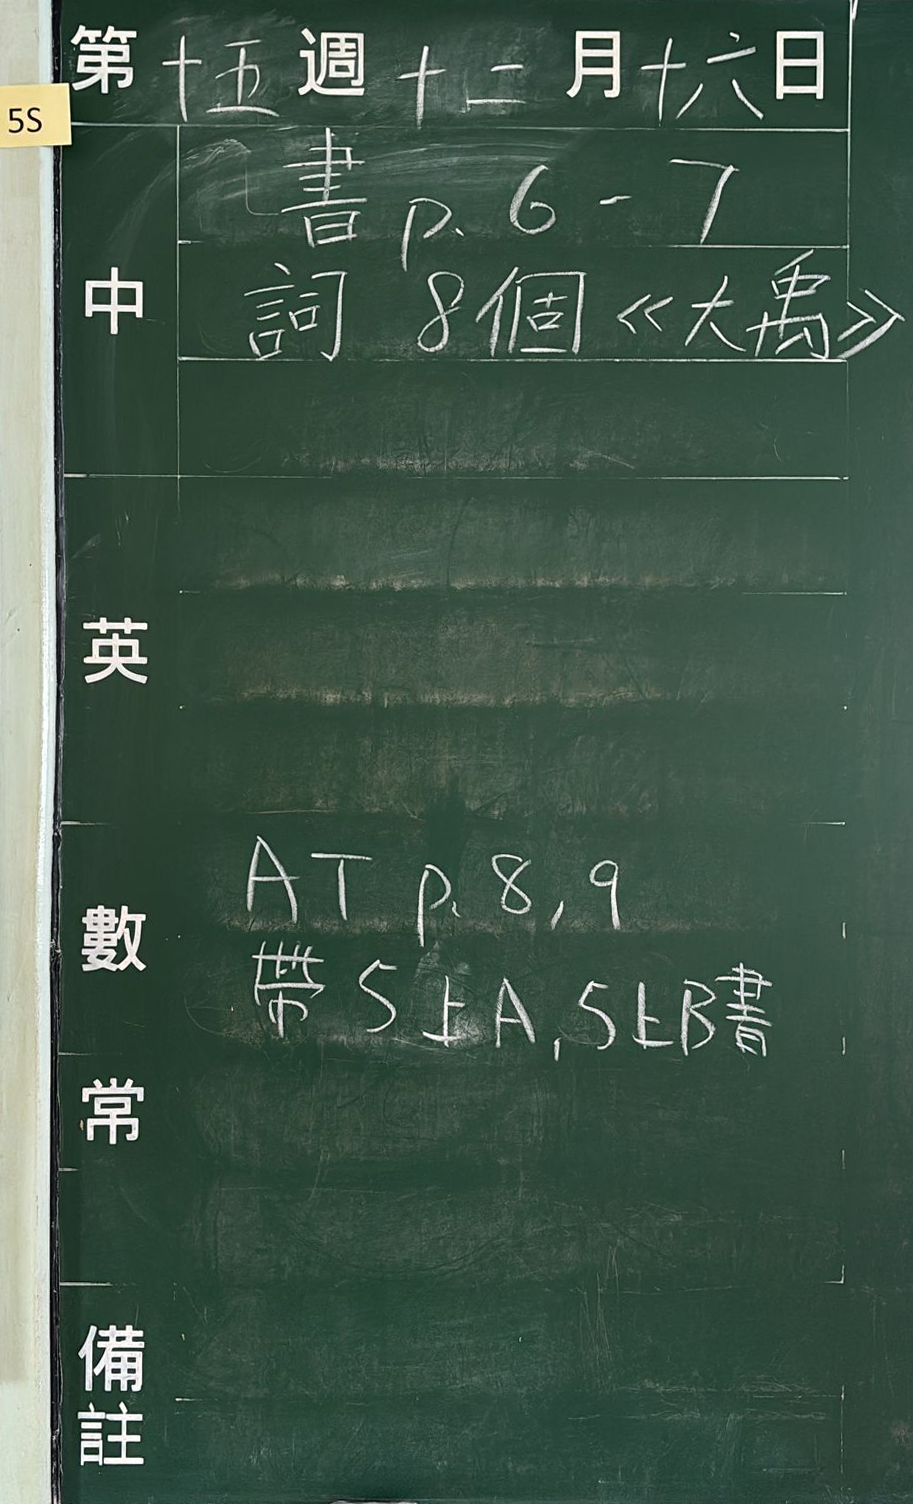 第十五週十二月十六日
5S
中
書 p. 6 - 7
詞 8個《大禹》
英
數
AT p. 8, 9
帶 5上A, 5上B書
常
備註